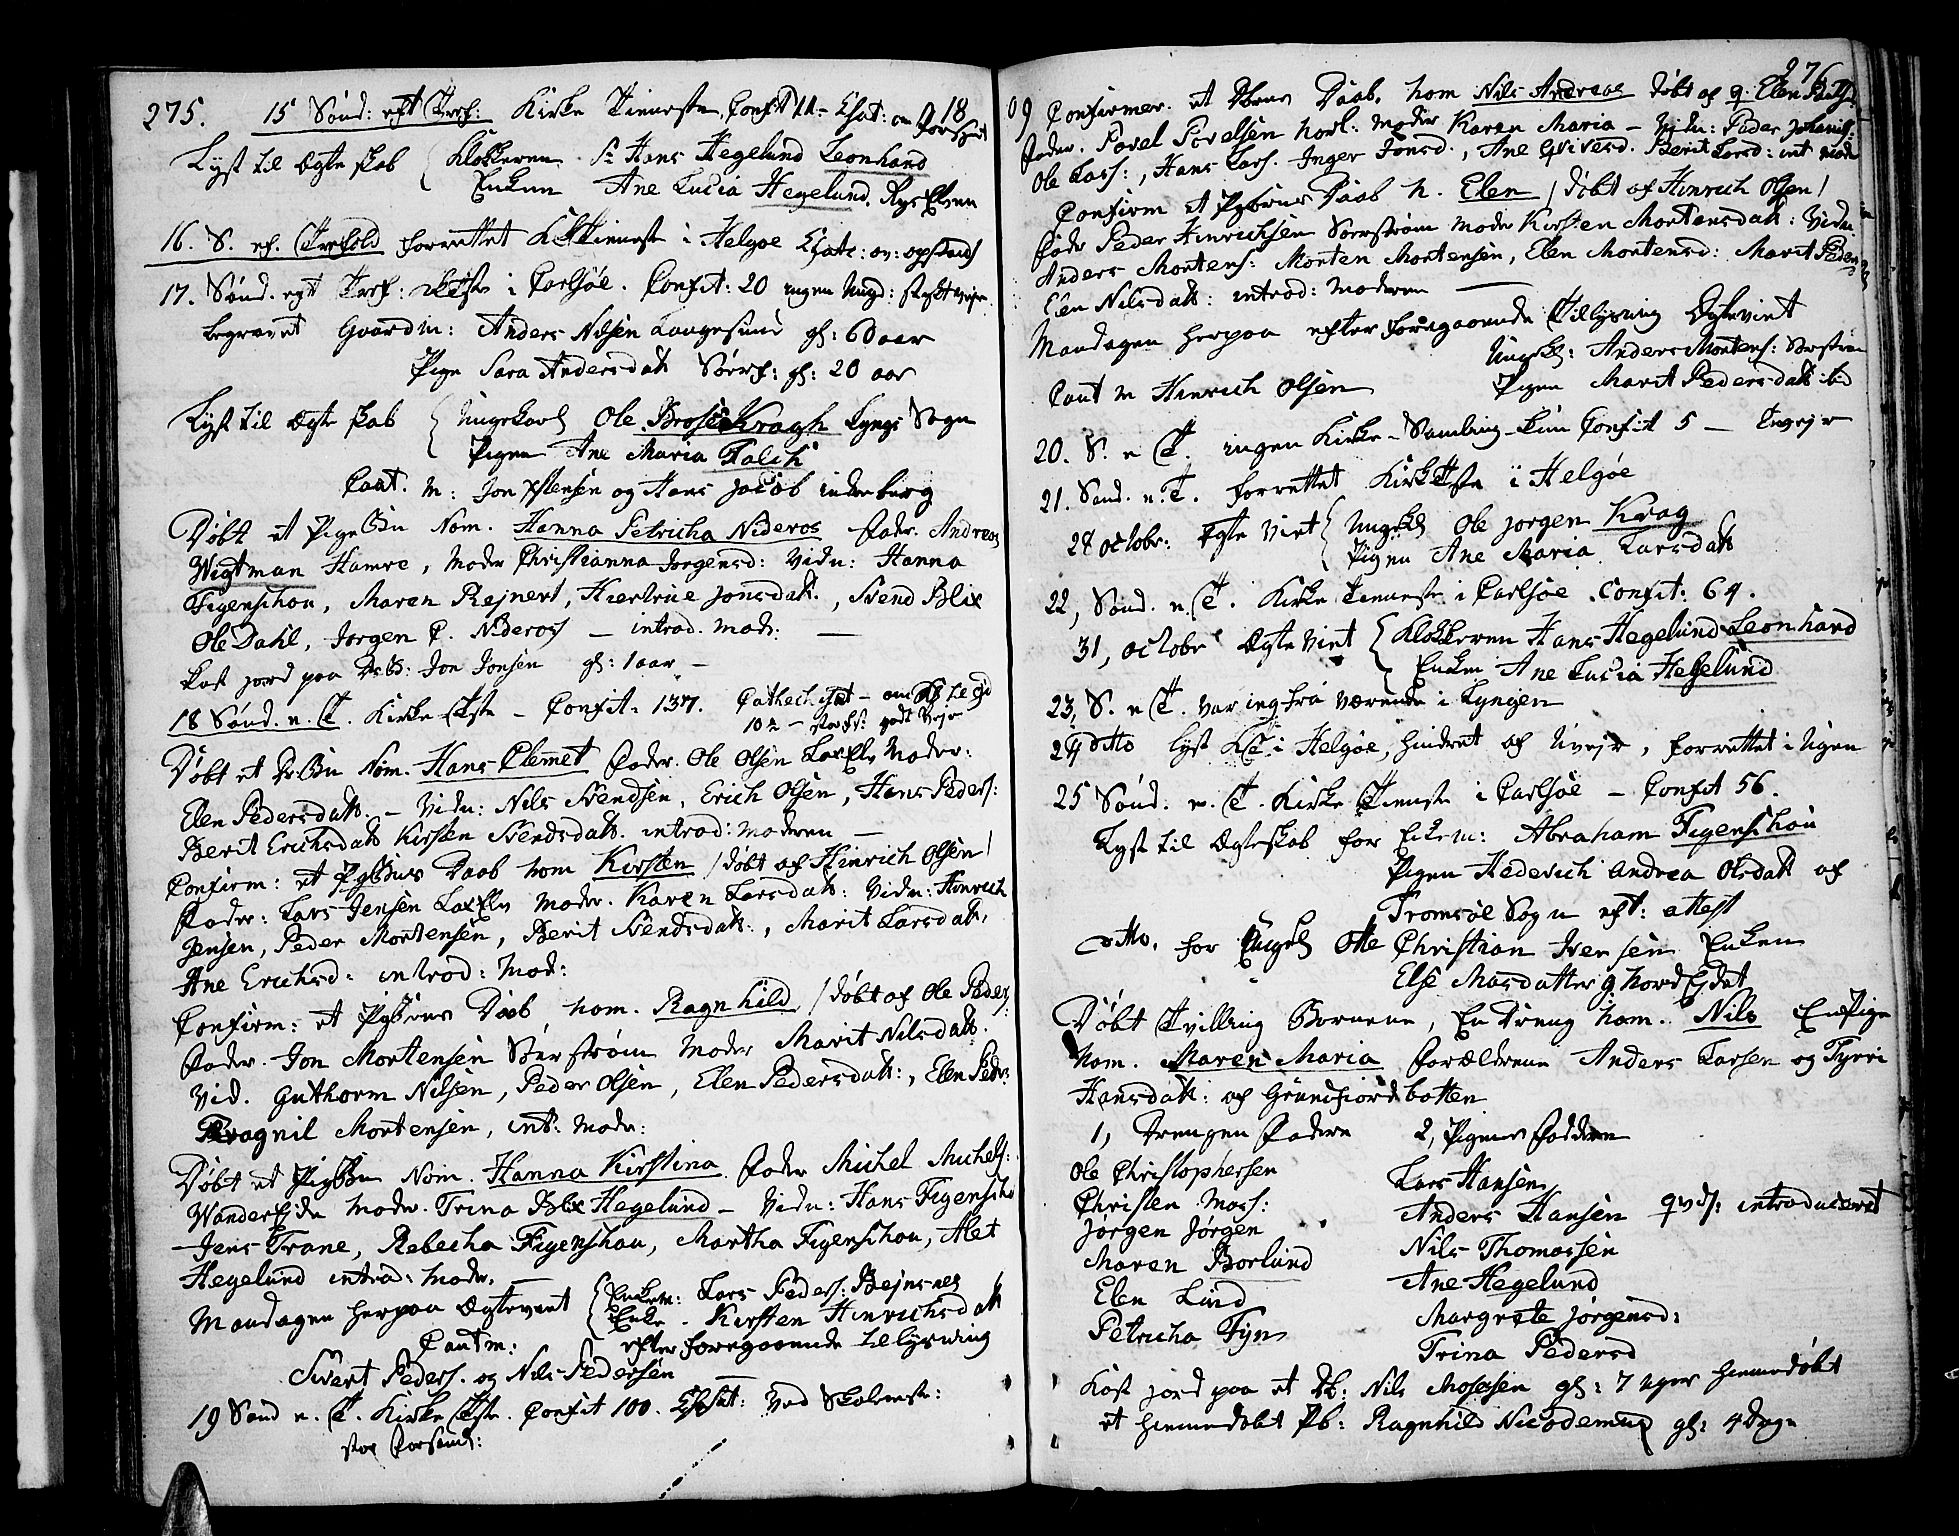 275. 15 Sønd: eft Tref: Kirke Tienneste, Confit 11 - Chat: om 18
Lyst til Egte skab { Klokkeren Sr Hans Hegelund Leonhard
Enken Ane Lucia Hegelund,
16. S. ef. Trefold forrettet i Helgøe
17. Sønd. eft Tref: i Carlsøe. Confit: 20 ingen Ungd:
begravet Gaardm: Anders Nilsen Langesund gl: 60 aar
Pige Sara Andersdatt gl: 20 aar
Lyst til Egte skab { Ungekarl Ole Kragh Lyngs Sogn
Pigen Ane Maria Falch
Caut. m: Jon og Hans Jacob
Døbt et Pige Bn Nom. Hanna Petricha Nideros Fader. Andreas
Wigtman Hamre, Moder Christianna Jørgensd: Vidn: Hanna
Figenschou, Maren Rejnert, Jonsdatt., Svend Blix
Ole Dahl, Jorgen C. Nideros - introd. Mod:
Kast jord paa DrB: Jon Jonsen gl: 1 aar -
18 Sønd. e. T. Kirke Tste - Confit. 137. Cathechiset - om
102 - godt Vejr
Døbt et DrBn Nom. Hans Clemet Fader. Ole Olsen LaxElv Moder:
Elen Pedersdatt. - Vidn: Nils Svendsen, Erich Olsen, Hans Peders:
Berit Erichsdatt Kirsten Svendsdatt. introd: Moderen -
Confirm: et PigBns Daab nom Kirsten / døbt af Hinrich Olsen /
Fader: Lars Jensen LaxElv Moder. Karen Larsdatt: Vidn: Hinrich
Jensen, Peder Mortensen, Berit Svendsdatt:, Marit Larsdatt,
Ane Erichsd: introd: Mod:
Confirm: et PigBns Daab nom. Ragnhild / døbt af Ole Peders:
Fader. Jon Mortensen Sørstrøm Moder Marit Nilsdatt.
Vid. Guthorm Nilsen, Peder Olsen, Elen Pedersdatt:, Elen Peders:
Ragnil Mortensen, int: Moder:
Døbt et PigBn Nom. Hanna Kirstina Fader Michel Michels:
WanderEjde Moder. Trina Blix Hegelund - Vidn: Hans Figenscho
Jens Trane, Rebecha Figenschou, Martha Figenschou, Alet
Hegelund introd: Moder. -
Mandagen herpaa Egteviet { Enkem: Lars Peders: Bejnsnes
Enke. Kirsten Hinrichsdatt
Cautm: efter foregaaende Lelysning
Sivert Peders. og Nils Pedersen -
19 Sønd e. T. Kirke Tste. Confit 100. Chat: Ved
276
09 Confirmer. et Børns Daab, nom Nils Andreas døbt af Elen
Fader. Povel Povelsen Moder Karen Maria - Vidn: Peder Johans:
Ole Lars:, Hans Lars. Inger Jonsd., Ane Berit Larsd: int Mod
Confirm et PigBørns Daab N. Elen / døbt af Hinrich Olsen /
Fader Peder Hinrichsen Sørstrøm Moder Kirsten Mortensdatt: Vidn
Anders Mortens: Morten Mortensen, Elen Mortensd: Marit Peders
Elen Nilsdatt: introd: Moderen -
Mandagen herpaa efter foregaaende Tillysning Egteviet
Ungekl: Anders Mortens: Sørstrøm
Caut m Hinrich Olsen Pigen Marit Pedersdatt ibd
20. S. e T. ingen Kirke-Samling Confit 5 -
21. Sønd. e. T. forrettet i Helgøe
28 octobr: Egte Viet { Ungekl Ole Jorgen Krag
Pigen Ane Maria Larsdatt
22, Sønd. e. T. Kirke Tienneste i Carlsøe. Confit: 64.
31, octobr Egte Viet { Klokkeren Hans Hegelund Leonhard
Enken Ane Lucia Hegelund
23, S. e T. var ieg fraværende i Lyngen
24 dtto lyst i Helgøe, hindret af Uvejr, forrettet i Ugen
25 Sønd: e. T. Kirke Tienste i Carlsøe - Confit 56.
Lyst til Egteskab for Enkem: Abraham Figenschou
Pigen Hederich Andrea Olsdatt af
Tromsøe Sogn eft: attest
dtto. for Ungkl Otte Christian Iversen Enken
Else Marsdatter
Døbt Tvilling Børnene, En Dreng nom. Nils En Pige
Nom. Maren Maria Forældrene Anders Larsen og Tyrri
Hansdatt: af Grundfiordbotten
1, Drengen Faddere 2, Pigens Faddere
Ole Christophersen Lars Hansen
Christen Mars: Anders Hansen introduceret
Jørgen Jørgen Nils Thomassen
Maren Borlund Ane Hegelund
Elen Lund Margrete Jørgensd:
Petricha Fyn Trina Pedersd
Kast jord paa et Db: Nils Mosesen gl: 7 Uger hiemedøbt
et hiemedøbt Pb: Ragnhild Nicodemus gl: 4 Dage